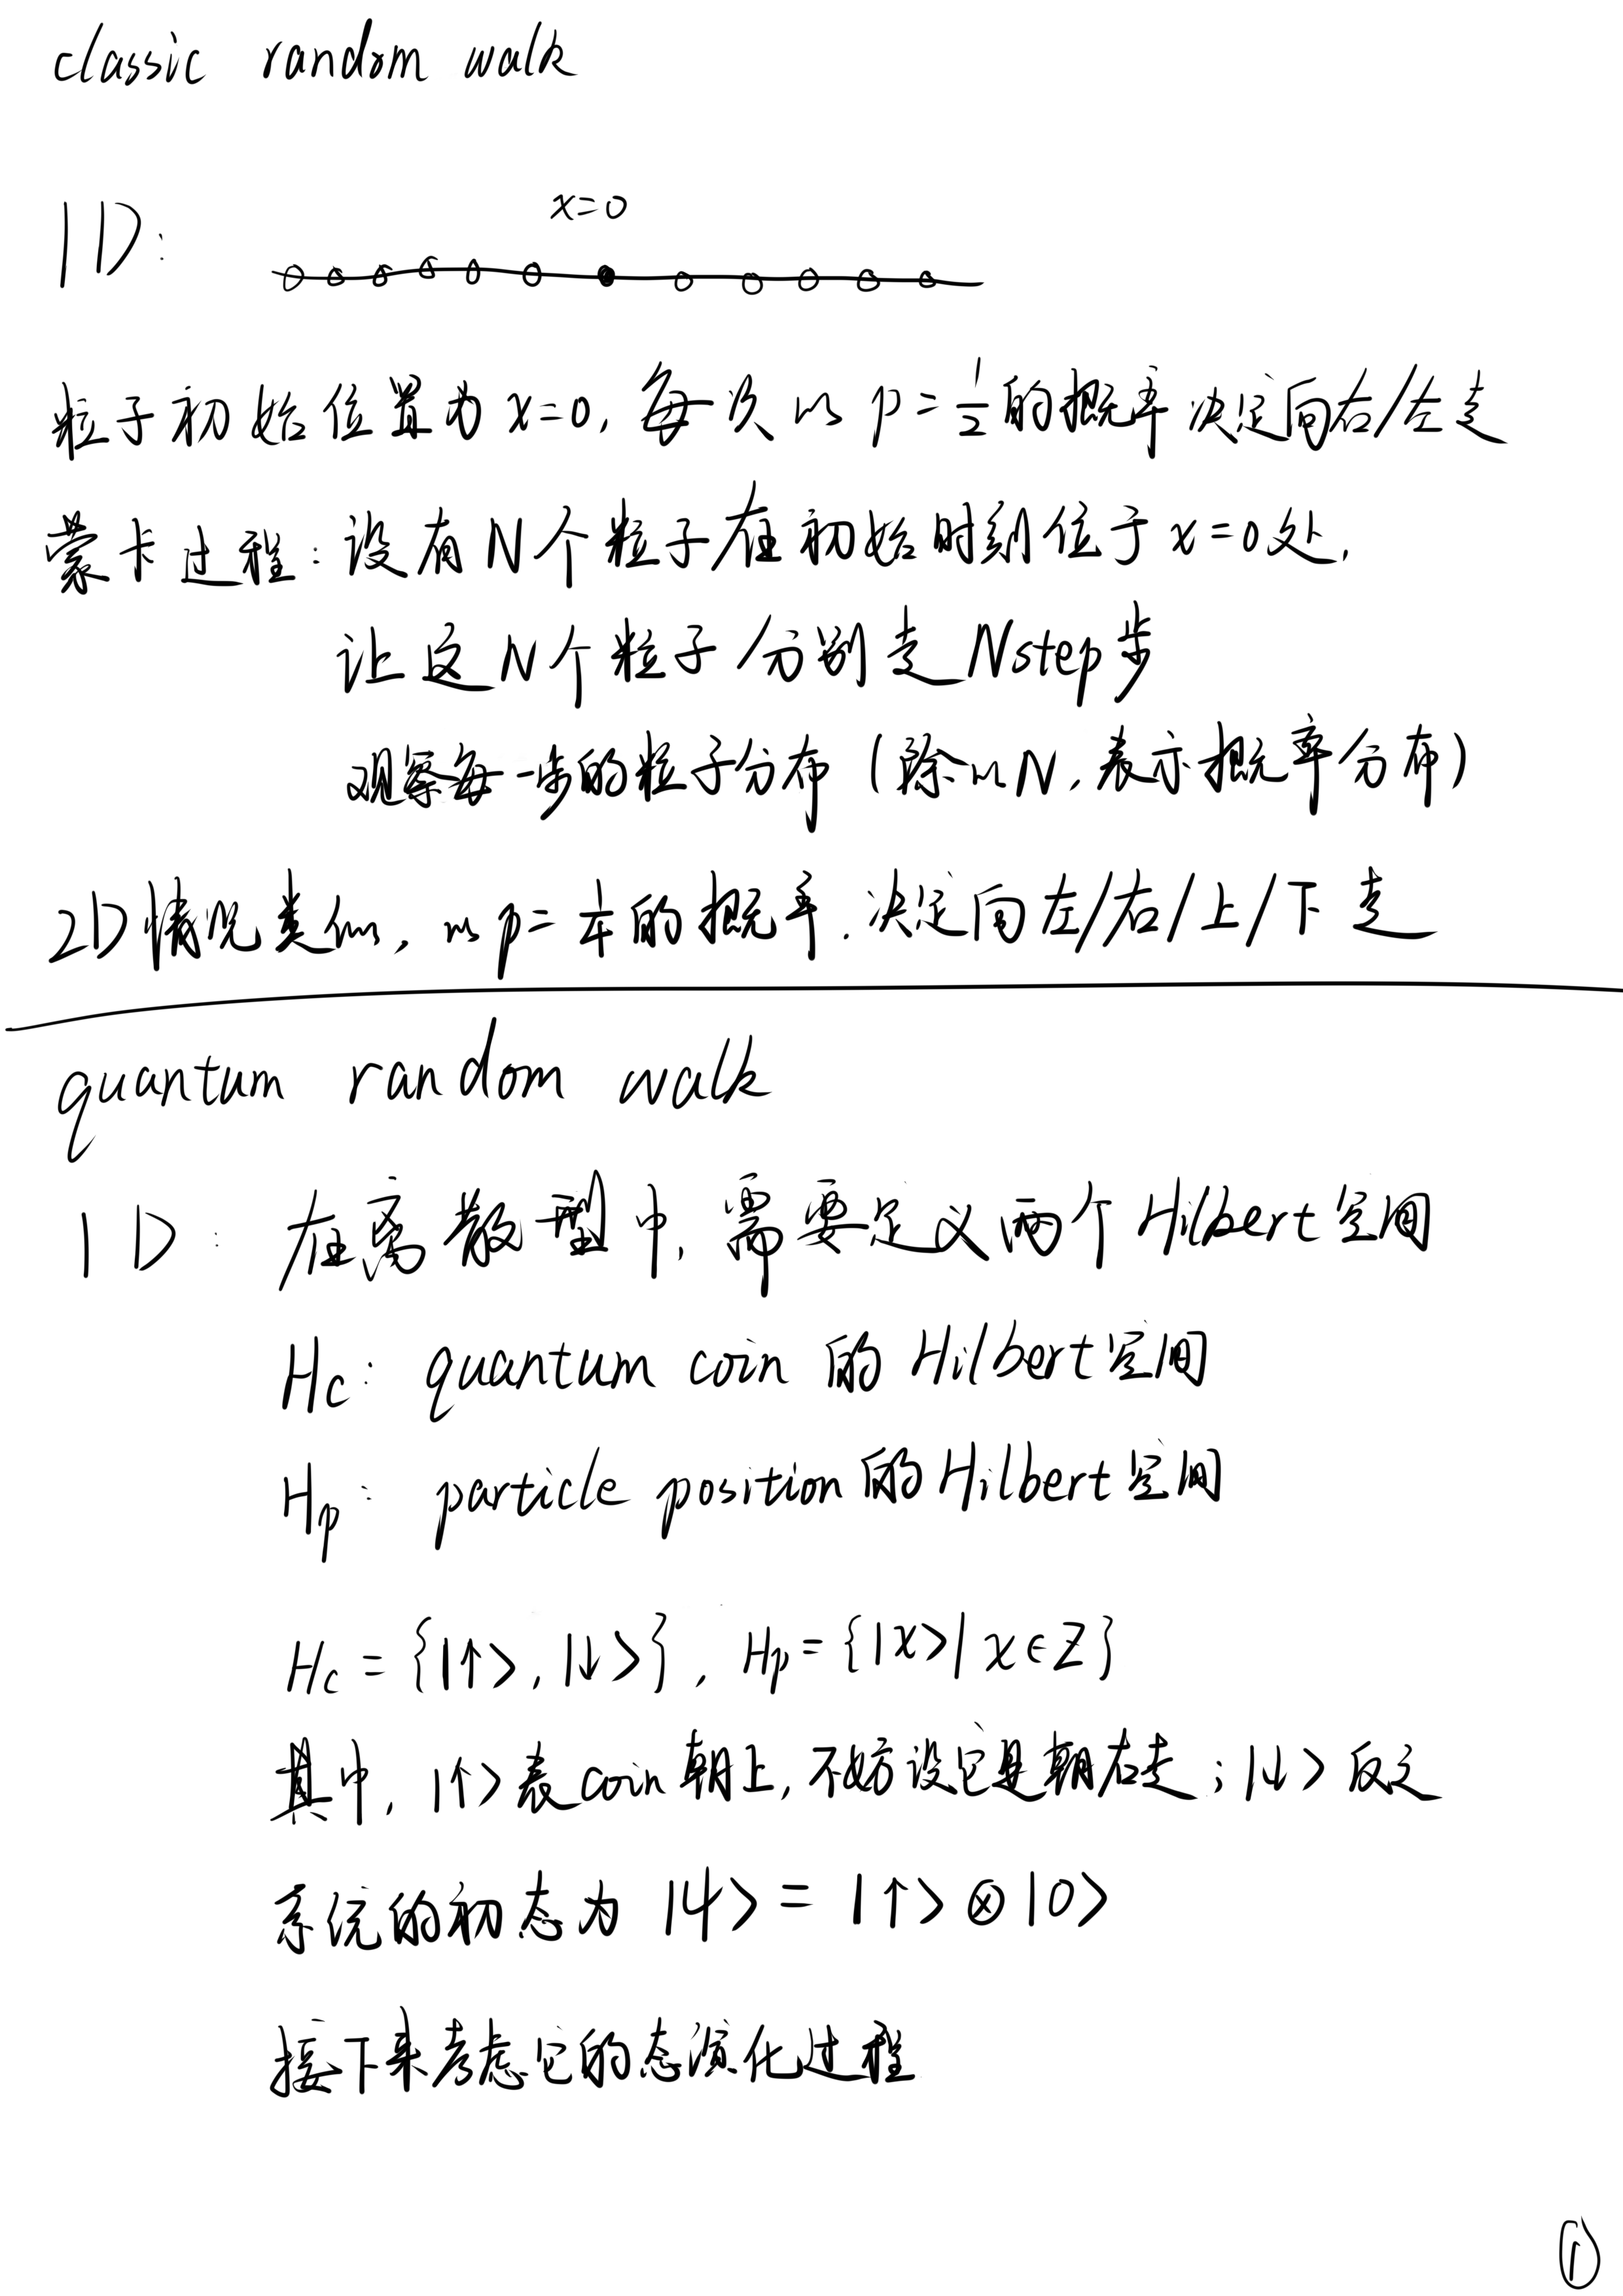 classic random walk
x=0
1D:
粒子初始位置为x=0,每次以p=1/2的概率决定向右/左走
蒙卡过程:设有N个粒子在初始时刻位于x=0处,
让这N个粒子分别走Nstep步
观察每一步的粒子分布(除以N,表示概率分布)
2D情况类似,以p=1/4的概率.决定向左/右/上/下走
quantum random walk
1D: 在离散型中,需要定义两个Hilbert空间
Hc: quantum coin 的 Hilbert空间
Hp: particle position的Hilbert空间
Hc={|↑>,|↓>}, Hp={|x>|x∈Z}
其中,|↑>表coin朝上,不妨设它是朝右走;|↓>反之
系统的初态为 |ψ>=|↑>⊗|0>
接下来考虑它的态演化过程
①